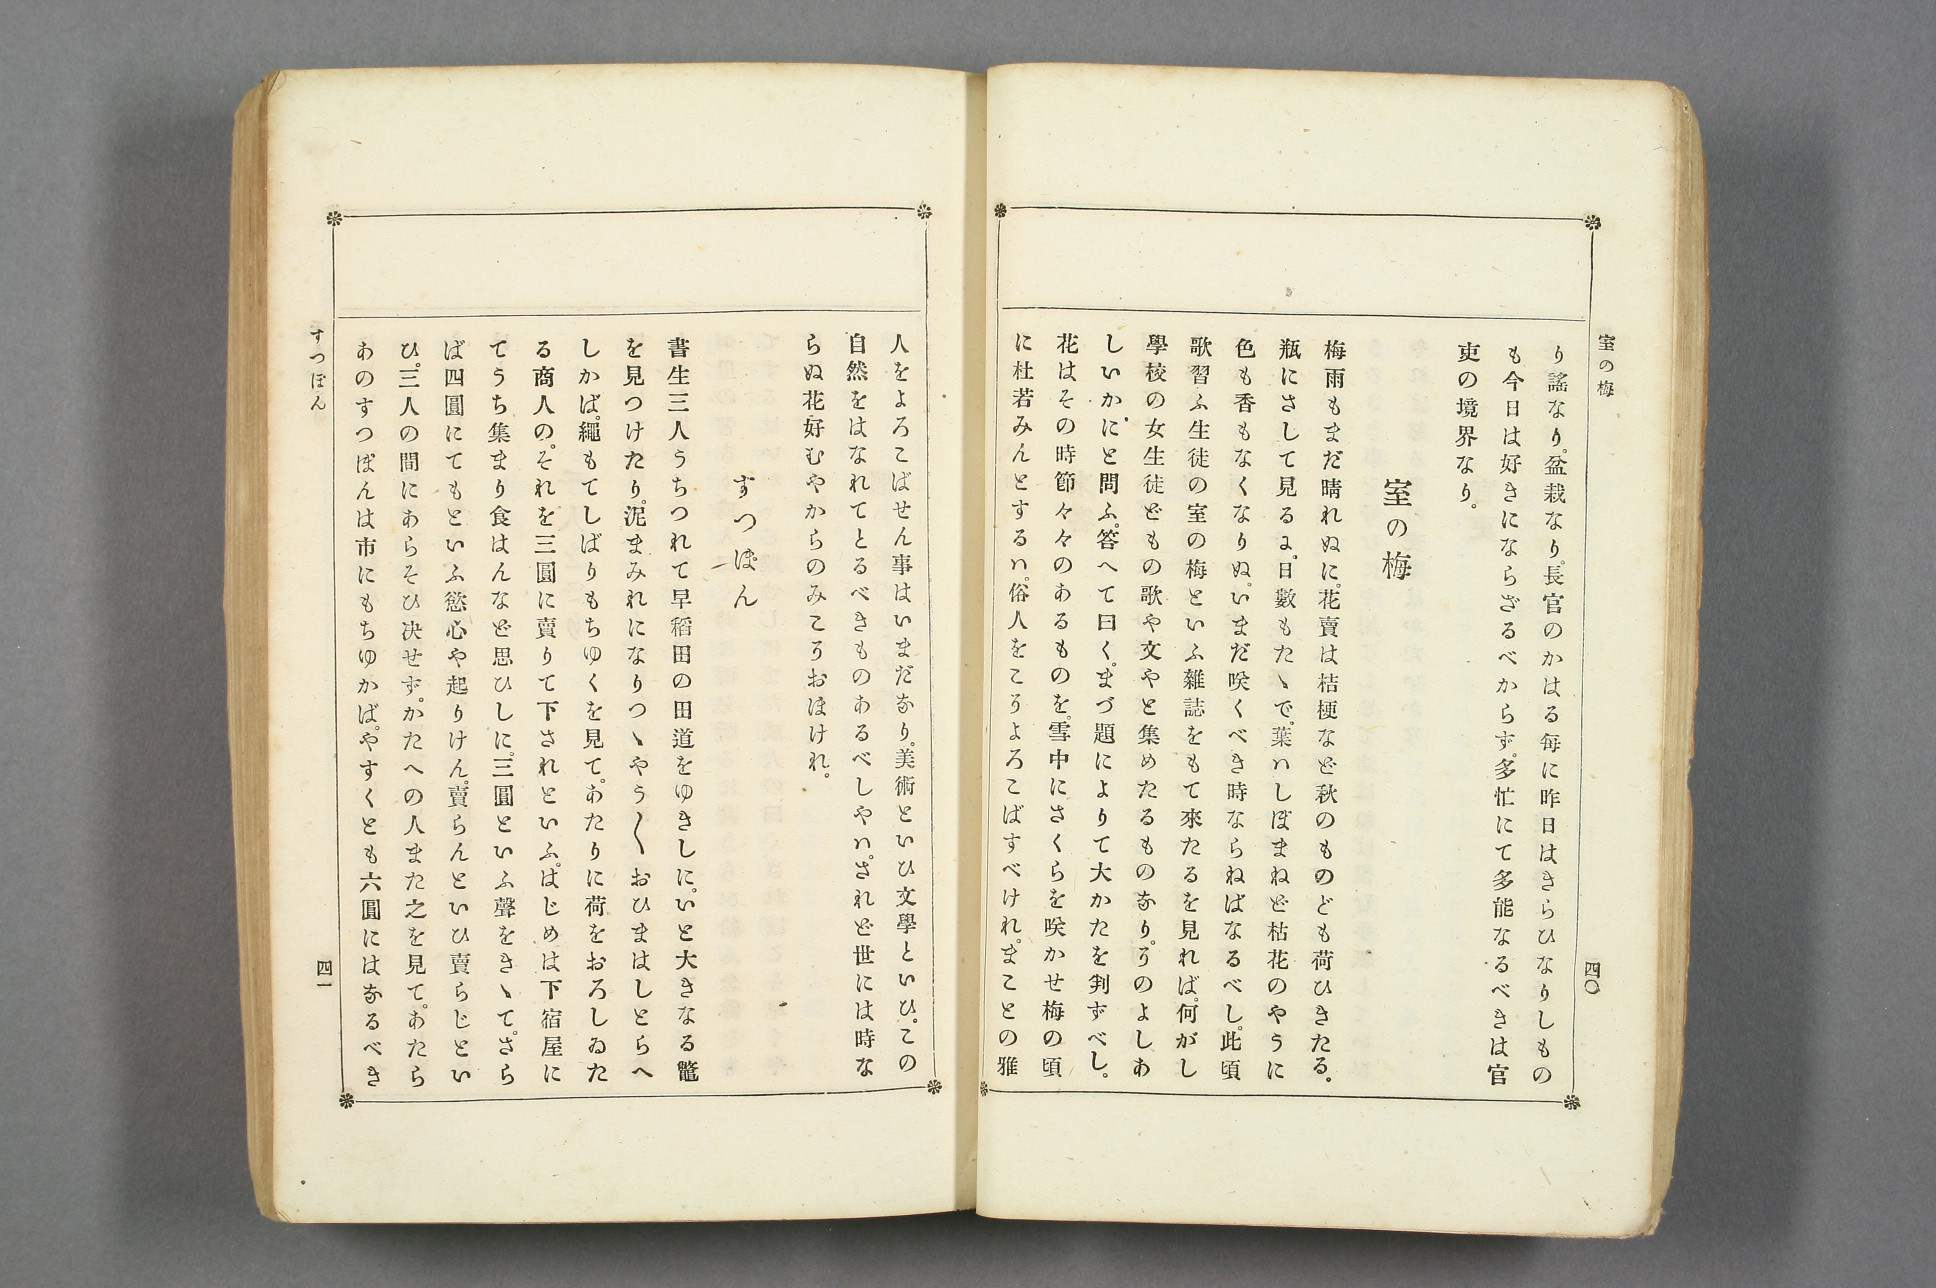 室の梅
四〇
り謠なり。盆栽なり。長官のかはる毎に昨日はきらひなりしもの
も今日は好きにならざるべからず。多忙にて多能なるべきは官
吏の境界なり。
室の梅
梅雨もまだ晴れぬに。花賣は桔梗など秋のものども荷ひきたる。
瓶にさして見るに。日數もたゝで。葉ハしぼまねど枯花のやうに
色も香もなくなりぬ。いまだ咲くべき時ならねばなるべし。此頃
歌習ふ生徒の室の梅といふ雜誌をもて來たるを見れば。何がし
學校の女生徒どもの歌や文やと集めたるものなり。そのよしあ
しいかにと問ふ。答へて曰く。まづ題によりて大かたを判ずべし。
花はその時節々々のあるものを。雪中にさくらを咲かせ梅の頃
に杜若みんとするハ。俗人をこそよろこばすべけれ。まことの雅
人をよろこばせん事はいまだなり。美術といひ文學といひ。この
自然をはなれてとるべきものあるべしやハ。されど世には時な
らぬ花好むやからのみこそおほけれ。
すつぽん
書生三人うちつれて早稻田の田道をゆきしに。いと大きなる鼈
を見つけたり。泥まみれになりつゝやう〳〵おひまはしとらへ
しかば。繩もてしばりもちゆくを見て。あたりに荷をおろしゐた
る商人の。それを三圓に賣りて下されといふ。はじめは下宿屋に
てうち集まり食はんなど思ひしに。三圓といふ聲をきゝて。さら
ば四圓にてもといふ慾心や起りけん。賣らんといひ賣らじとい
ひ。三人の間にあらそひ决せず。かたへの人また之を見て。あたら
あのすつぽんは市にもちゆかば。やすくとも六圓にはなるべき
すつぽん
四一